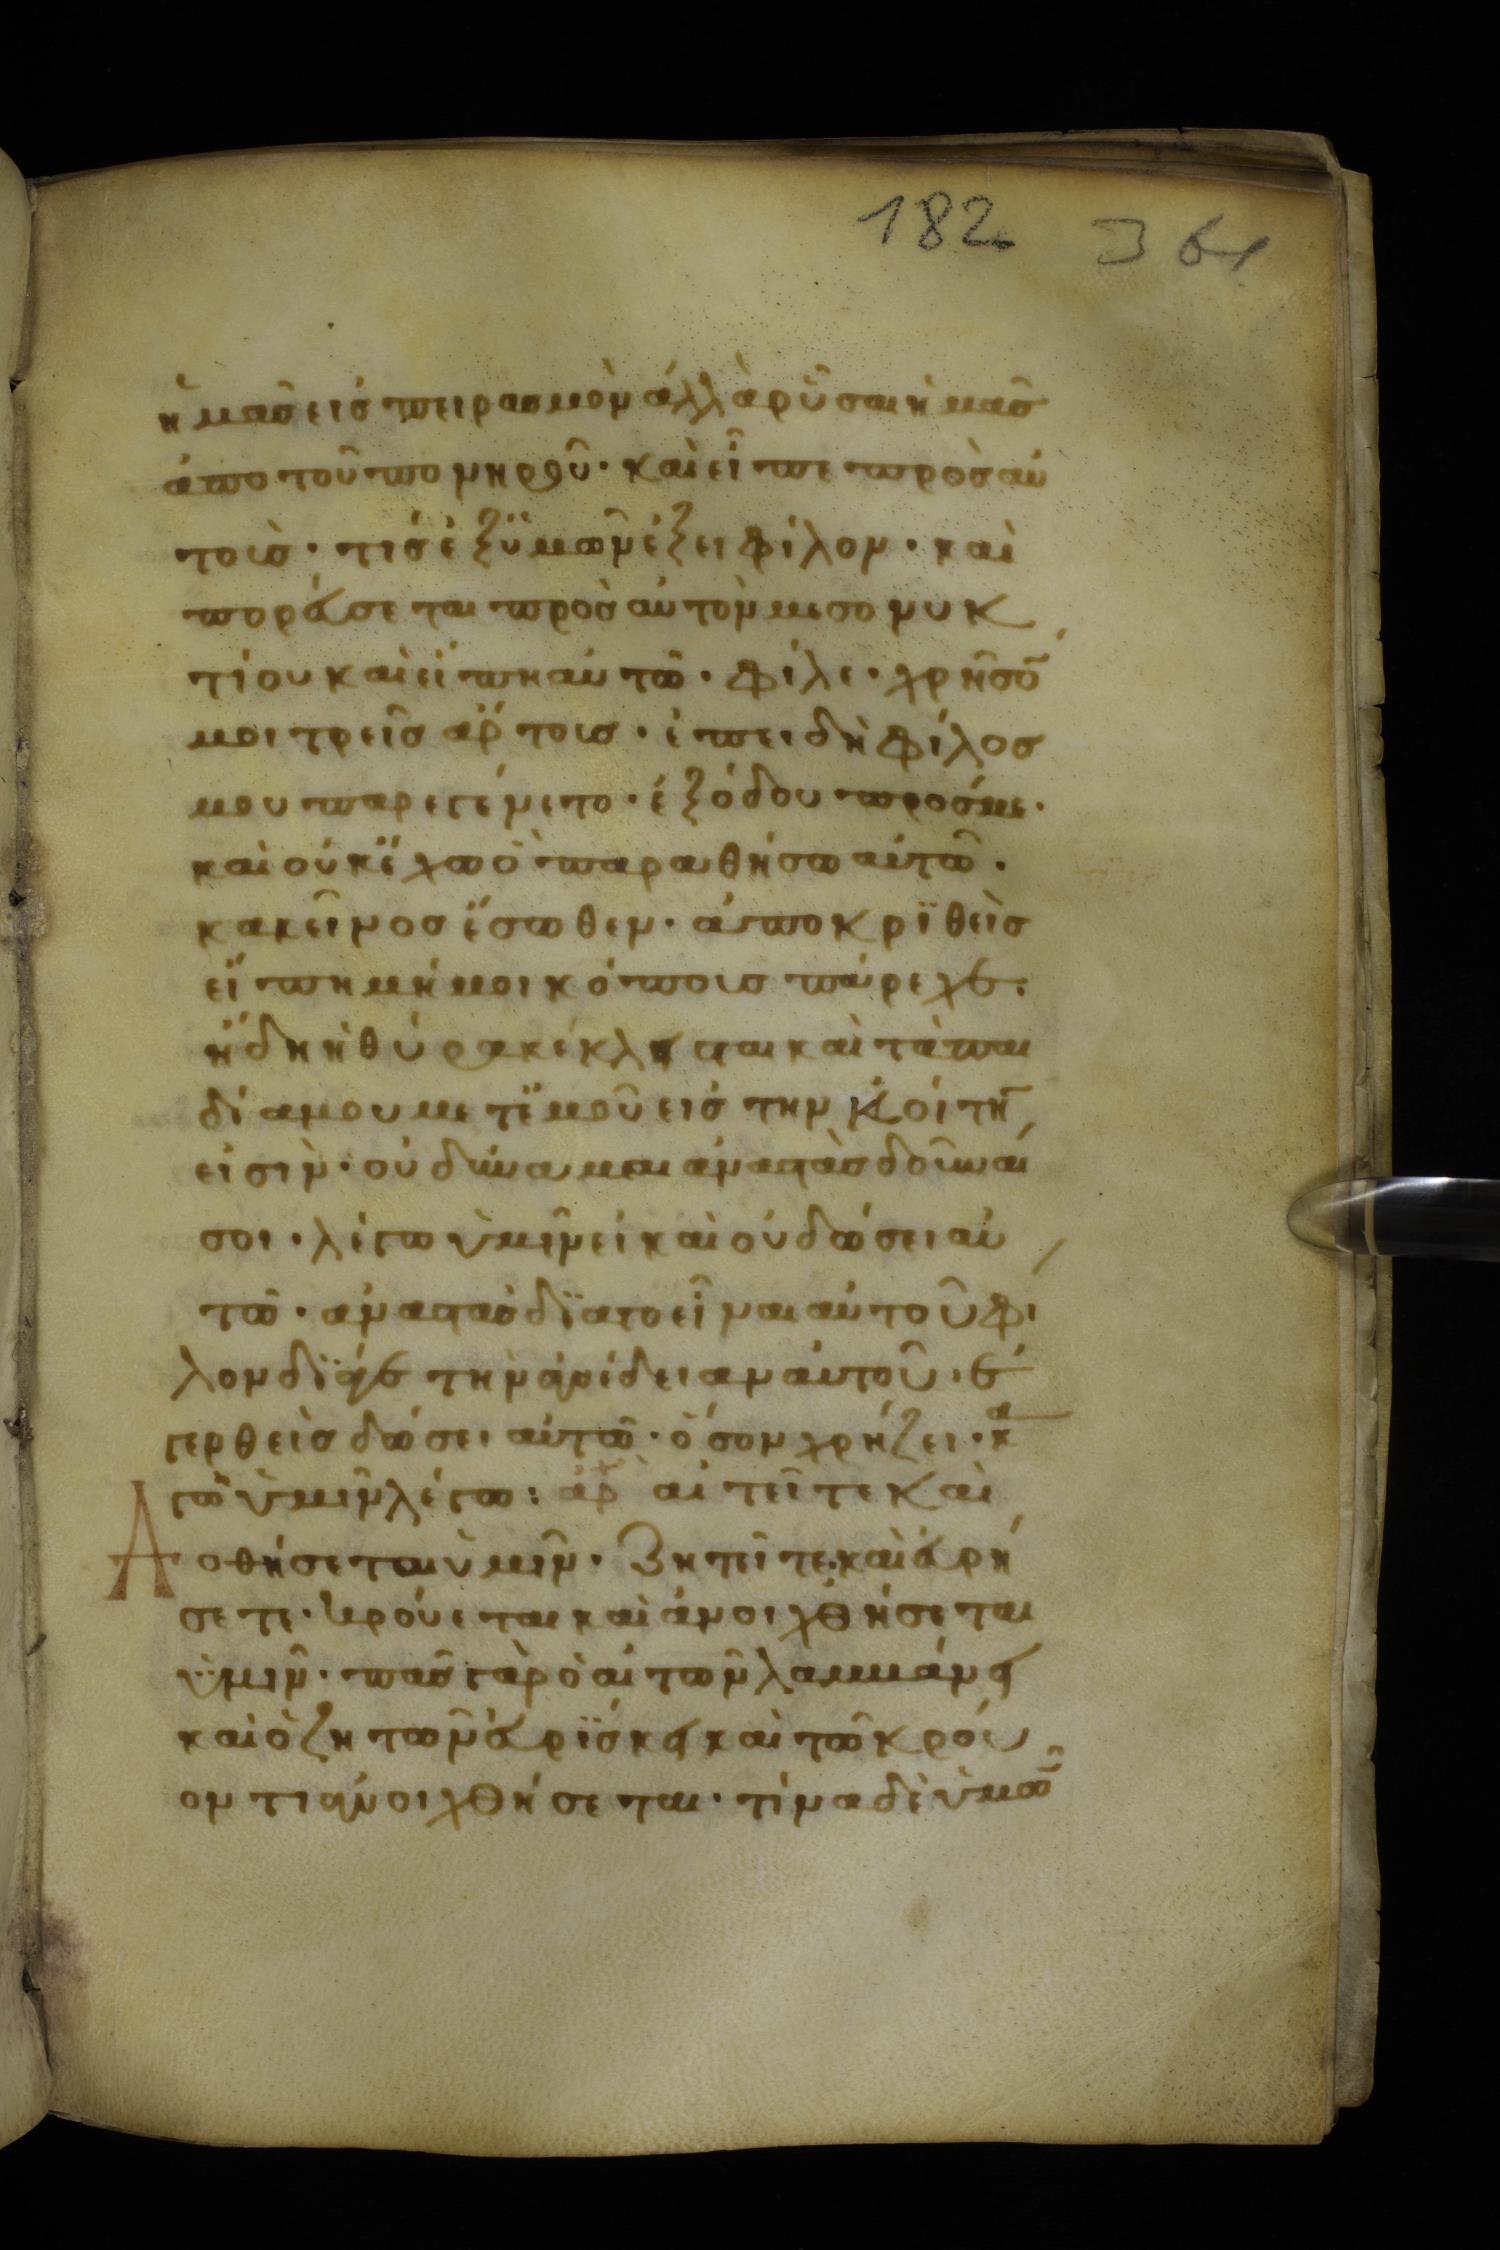 182 364
ἡμᾶς εἰς πειρασμὸν ἀλλὰ ρῦσαι ἡμᾶς
ἀπο τοῦ πονηροῦ· καὶ εἶπε πρὸς αὐ
τοὺς· τίς ἐξ ϋμῶν ἕξει φίλον· καὶ
πορεύσεται πρὸς αὐτὸν μεσονυκ
τίου καὶ εἴπη αὐτῶ· φίλε· χρῆσό
μοι τρεῖς ἄρτους· ἐπειδὴ φίλος
μου παρεγένετο· ἐξ ὁδου πρός με·
καὶ οὐκ ἔχω ὃ παραθήσω αὐτῶ·
κακεῖνος ἔσωθεν· ἀποκρϊθεὶς
εἴπη μή μοι κόπους πάρεχε:
ἤδη ἡ θύρα κέκλησται καὶ τὰ παι
δία μου μετ ἐμοῦ εἰς την κοίτη̄
εἰσὶν· οὐ δύναμαι ἀναστὰς δοῦναί
σοι· λέγω ὑμῖν εἰ καὶ οὐ δώσει αὐ
τῶ· ἀναστὰς δϊα το εἶναι αὐτοῦ φί
λον δϊά γε τὴν ἀναίδειαν αὐτοῦ· ἐ
γερθεὶς δώσει αὐτῶ· ὅσον χρήζει· κα
γῶ ὑμῖν λέγω: αρχ αἰτεῖτε καὶ
Δοθήσεται ὑμῖν· Ζητεῖτε καὶ εὑρή
σετε· κρούεται καὶ ἀνοιχθήσεται
ὑμῖν· πᾶς γὰρ ὁ αἰτῶν λαμμάνει
καὶ ὁ ζητῶν εὑρϊσκει καὶ τῶ κρού
οντι ἀνοιχθήσεται· τίνα δὲ ὑμῶ̄